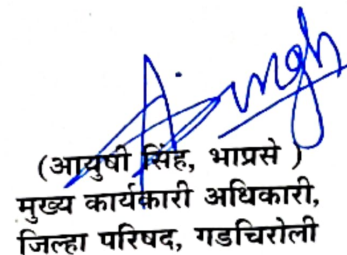 Asingh
(आयुषी सिंह, भाप्रसे )
मुख्य कार्यकारी अधिकारी,
जिल्हा परिषद, गडचिरोली